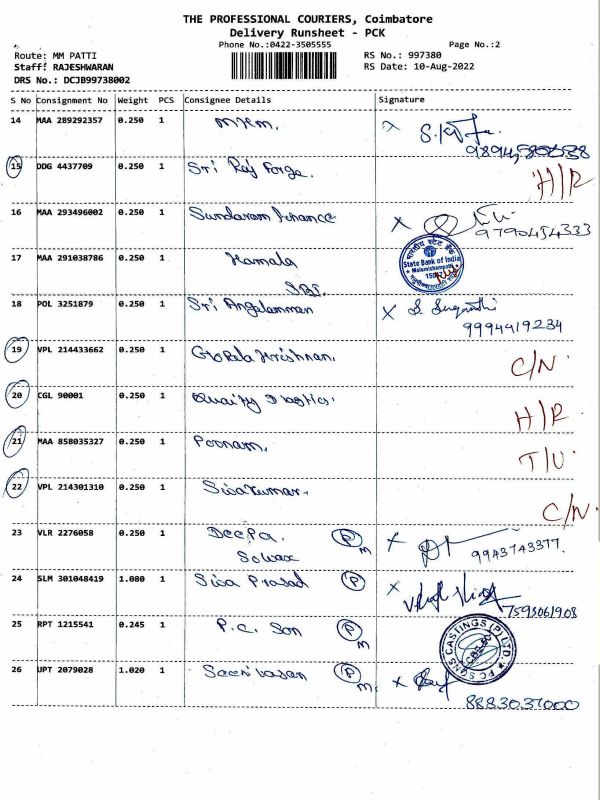 THE PROFESSIONAL COURIERS, Coimbatore
Delivery Runsheet - PCK
Phone No.:0422-3505555 Page No.:2
Route: MM PATTI RS No.: 997380
Staff: RAJESHWARAN RS Date: 10-Aug-2022
DRS No.: DCJB99738002
S No Consignment No Weight PCS Consignee Details Signature
14 MAA 289292357 0.250 1 MKM.
15 DDG 4437709 0.250 1 Sri Raj Forge. H/R
16 MAA 293496002 0.250 1 Sundaram Finance X
9790454333
17 MAA 291038786 0.250 1 Kamala
SBI.
State Bank of India
Malumichampatti
18 POL 3251879 0.250 1 Sri Angalamman X S. Suganthi
9994419234
19 VPL 214433662 0.250 1 Gopala Krishnan. C/N.
20 CGL 90001 0.250 1 H/R
21 MAA 858035327 0.250 1 Poonam. T/U.
22 VPL 214301310 0.250 1 Sivakumar. C/N.
23 VLR 2276058 0.250 1 Deepa. P M X
Solvax 9943743377.
24 SLM 301048419 1.080 1 Siva Prasad P X
7593061908
25 RPT 1215541 0.245 1 P.C. Son P M
PC SONS CASTINGS (P) LTD
26 UPT 2079028 1.020 1 Seenivasan P M X
8883037000